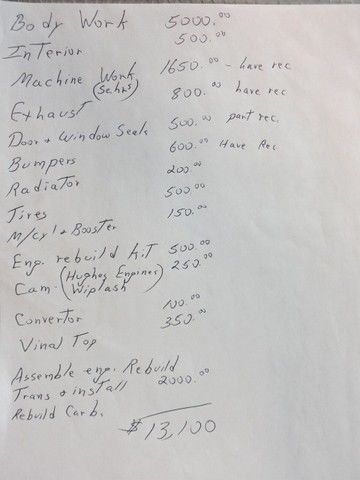 Body Work 5000.00
Interior 500.00
Machine Work 1650.00 - have rec
(Schrs)
Exhaust 800.00 have rec
Door + Window Seals 500.00 part rec.
Bumpers 600.00 Have Rec
Radiator 200.00
Tires 500.00
M/cyl + Booster 150.00
Eng. rebuild kit 500.00
(Hughes Engines)
Cam. (Wiplash) 250.00
Convertor 100.00
Vinal Top 350.00
Assemble eng. Rebuild
Trans + install 2000.00
Rebuild Carb.
$13,100